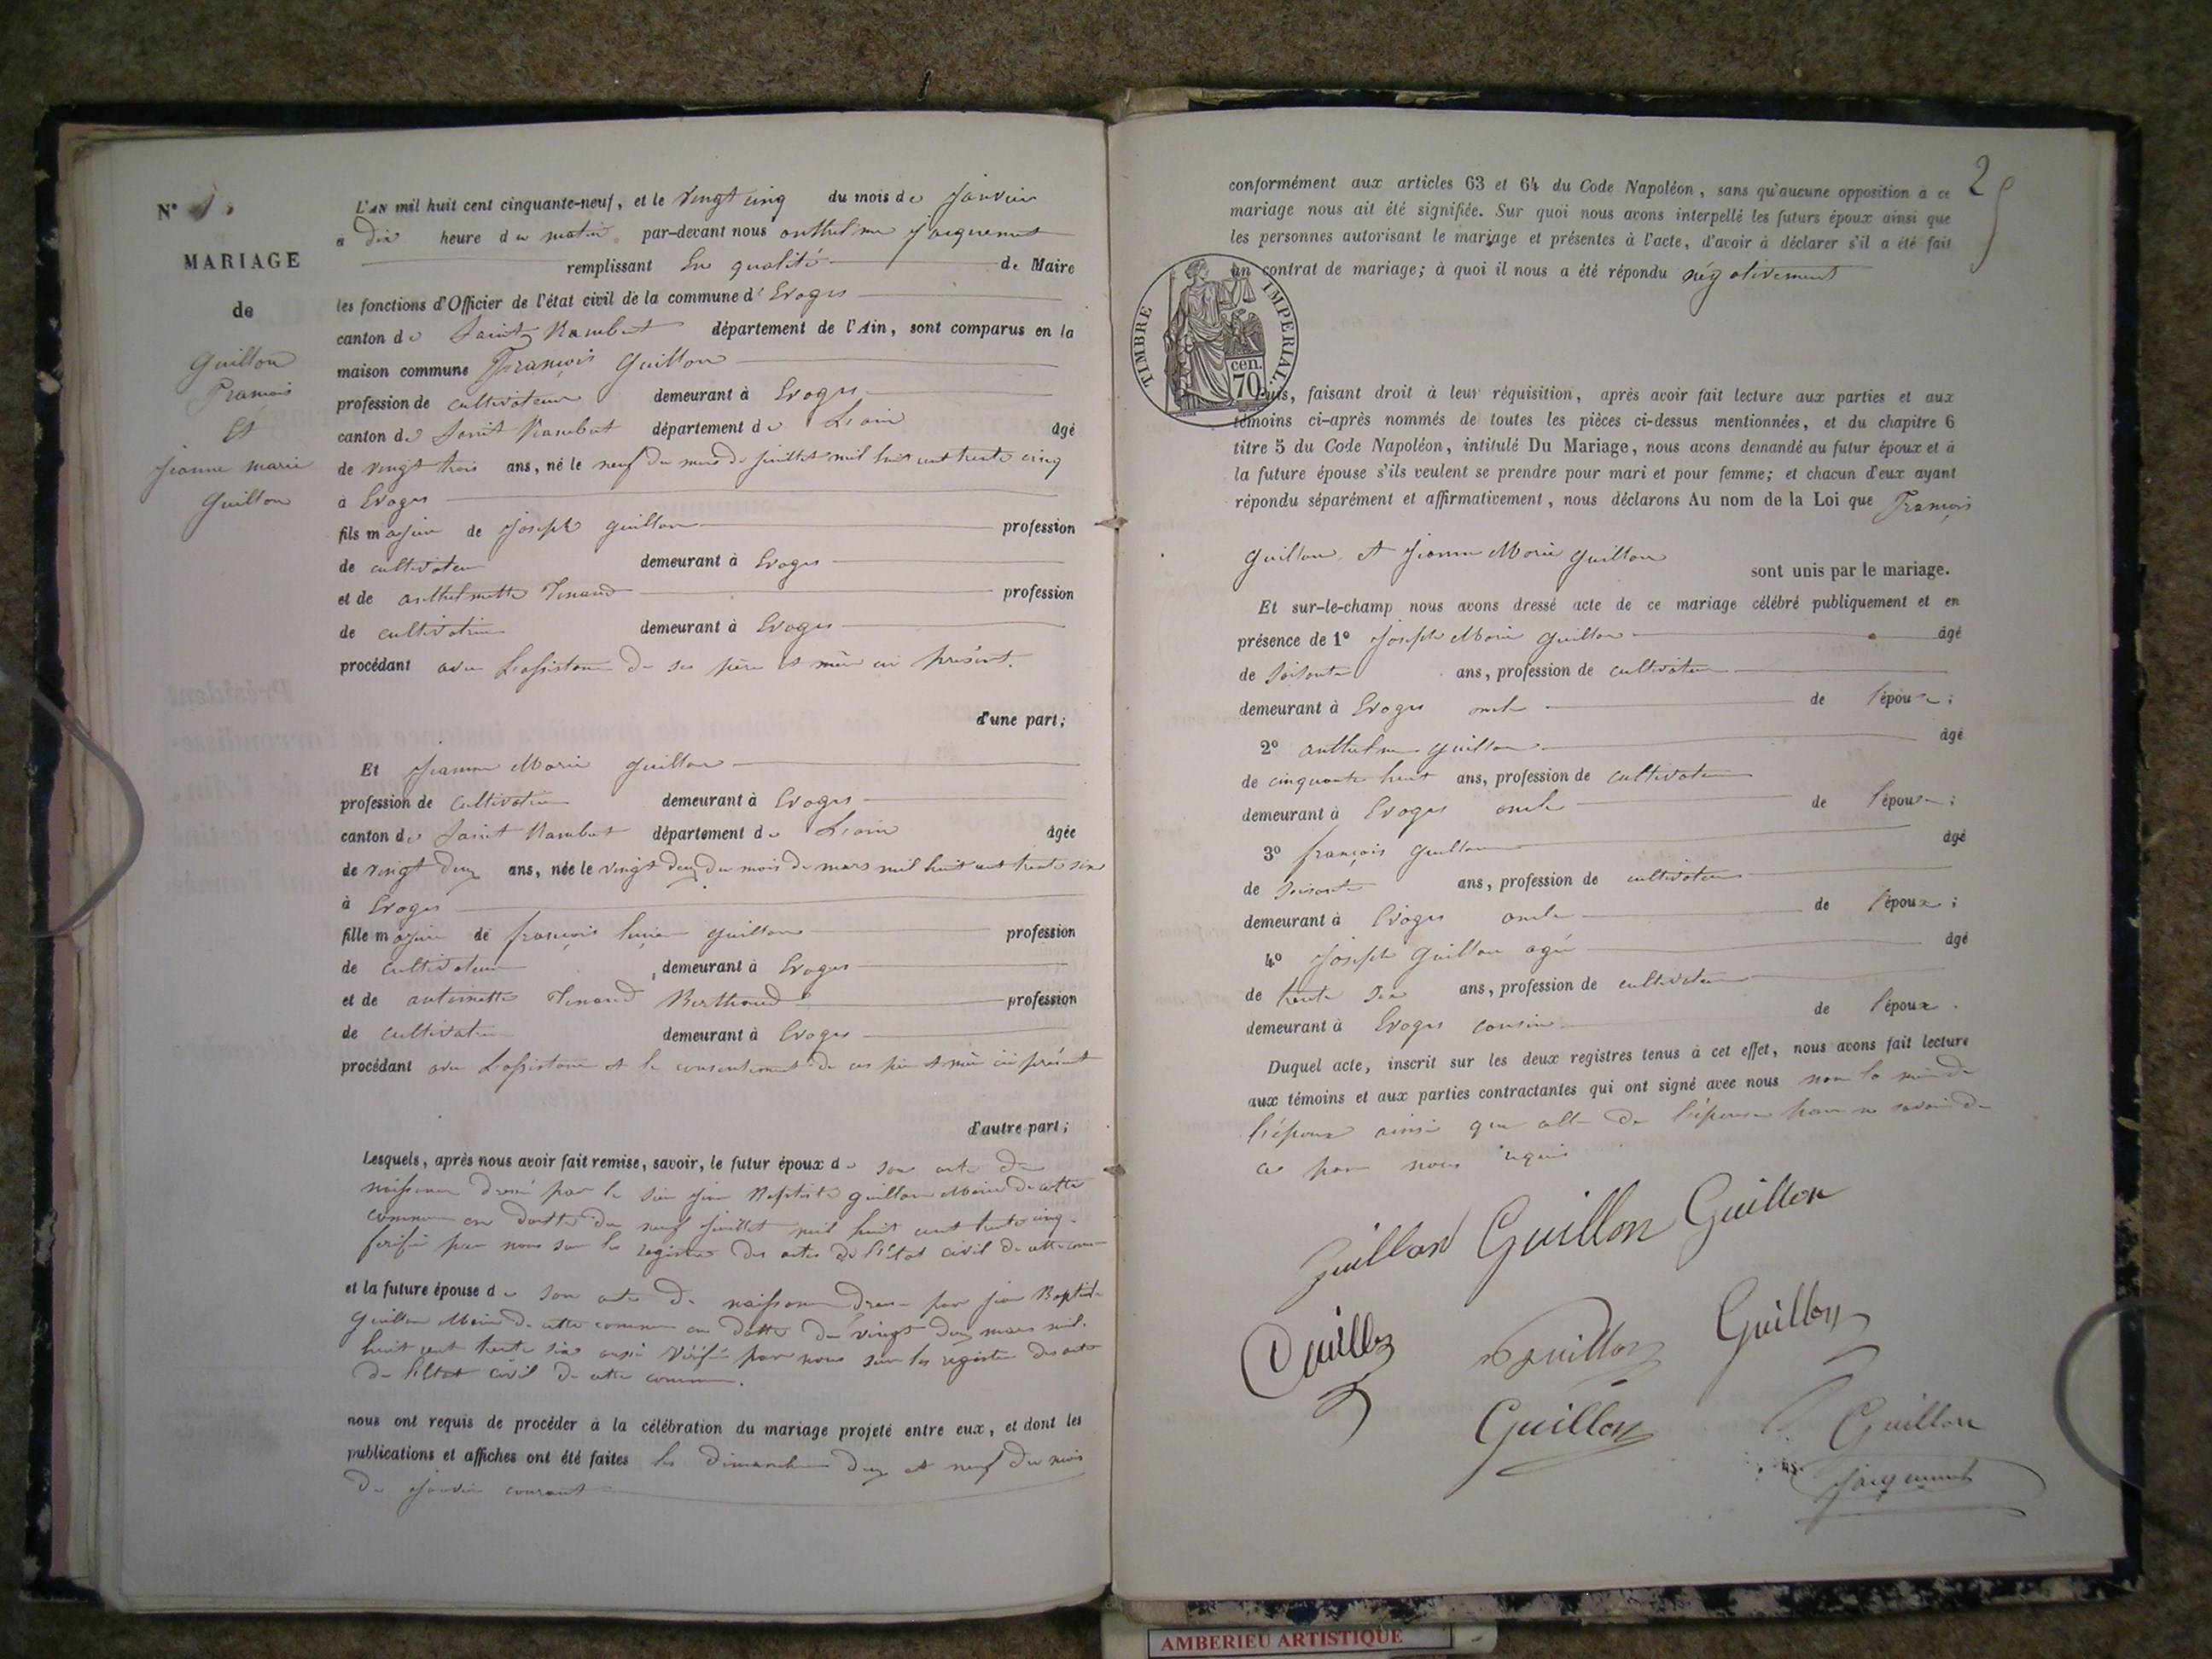 N° 1
MARIAGE
de
Guillon
François
Et
Jeanne marie
Guillon
L'AN mil huit cent cinquante-neuf, et le vingt cinq du mois de Janvier
à dix heure du matin par-devant nous anthelme Jacquemet
remplissant En qualité de Maire
les fonctions d'Officier de l'état civil de la commune d'Evoges
canton de Saint Rambert département de l'Ain, sont comparus en la
maison commune François Guillon
profession de cultivateur demeurant à Evoges
canton de Saint Rambert département de L'ain âgé
de vingt trois ans, né le neuf du mois de juillet mil huit cent trente cinq
à Evoges
fils majeur de Joseph Guillon profession
de cultivateur demeurant à Evoges
et de anthelmette Tenand profession
de cultivatrice demeurant à Evoges
procédant avec L'assistance de ses père et mère ici présent.
d'une part;
Et Jeanne Marie Guillon
profession de cultivatrice demeurant à Evoges
canton de Saint Rambert département de L'ain âgée
de vingt deux ans, née le vingt deux du mois de mars mil huit cent trente six
à Evoges
fille majeure de françois Guillon profession
de cultivateur demeurant à Evoges
et de antoinette Tenand Berthoud profession
de cultivatrice demeurant à Evoges
procédant avec L'assistance et le consentement de ces père et mère ici présent
d'autre part;
Lesquels, après nous avoir fait remise, savoir, le futur époux de son acte de
naissance dressé par le sieur Jean Baptiste Guillon Maire de cette
commune en datte du neuf Juillet mil huit cent trente cinq
par nous sur les registres des actes de l'état civil de cette commune
et la future épouse de son acte de naissance dressé par Jean Baptiste
Guillon Maire de cette commune en datte du vingt deux mars mil
huit cent trente six aussi vérifié par nous sur les registres des actes
de l'état civil de cette commune.
nous ont requis de procéder à la célébration du mariage projeté entre eux, et dont les
publications et affiches ont été faites les dimanches deux et neuf du mois
de Janvier courant
25
conformément aux articles 63 et 64 du Code Napoléon, sans qu'aucune opposition à ce
mariage nous ait été signifiée. Sur quoi nous avons interpellé les futurs époux ainsi que
les personnes autorisant le mariage et présentes à l'acte, d'avoir à déclarer s'il a été fait
un contrat de mariage; à quoi il nous a été répondu négativement
TIMBRE IMPERIAL.
cen.
70.
Puis, faisant droit à leur réquisition, après avoir fait lecture aux parties et aux
témoins ci-après nommés de toutes les pièces ci-dessus mentionnées, et du chapitre 6
titre 5 du Code Napoléon, intitulé Du Mariage, nous avons demandé au futur époux et à
la future épouse s'ils veulent se prendre pour mari et pour femme; et chacun d'eux ayant
répondu séparément et affirmativement, nous déclarons Au nom de la Loi que François
Guillon et Jeanne Marie Guillon
sont unis par le mariage.
Et sur-le-champ nous avons dressé acte de ce mariage célébré publiquement et en
présence de 1° Joseph Marie Guillon âgé
de soisante ans, profession de cultivateur
demeurant à Evoges oncle de l'épouse;
2° anthelme Guillon âgé
de cinquante huit ans, profession de cultivateur
demeurant à Evoges oncle de l'épouse;
3° françois Guillon âgé
de soisante ans, profession de cultivateur
demeurant à Evoges oncle de l'époux;
4° Joseph Guillon agé âgé
de trente six ans, profession de cultivateur
demeurant à Evoges cousin de l'époux.
Duquel acte, inscrit sur les deux registres tenus à cet effet, nous avons fait lecture
aux témoins et aux parties contractantes qui ont signé avec nous non la mère de
l'époux ainsi que celle de l'épouse pour ne savoir de
ce par nous requis
Guillon Guillon Guillon
Guillon Guillon Guillon
Guillon Guillon
Jacquemet
AMBERIEU ARTISTIQUE